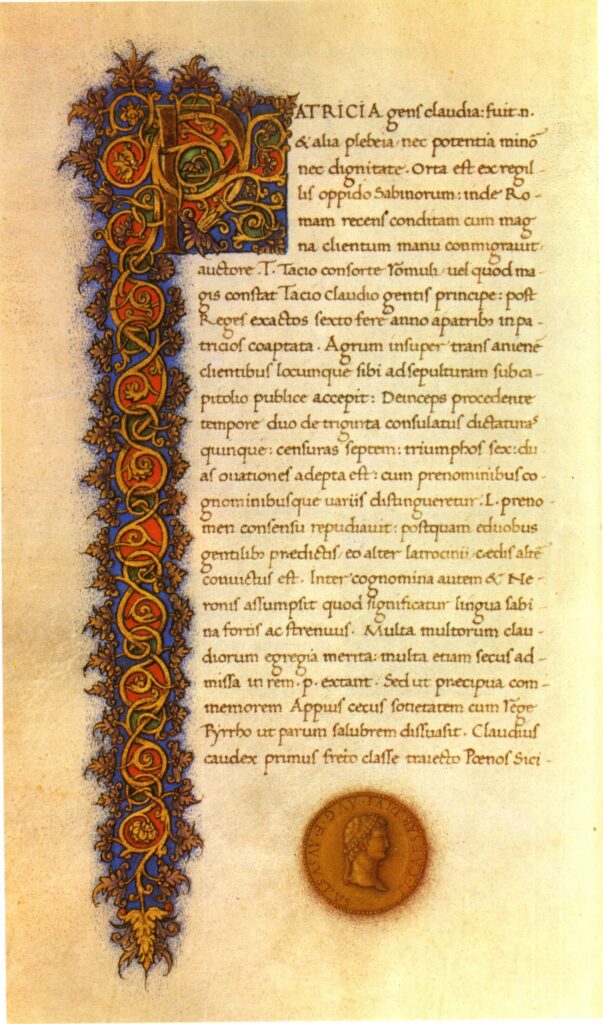 PATRICIA gens claudia: fuit .n.
& alia plebeia nec potentia minō
nec dignitate. Orta est ex regil-
lis oppido Sabinorum: inde Ro-
mam recens conditam cum mag
na clientum manu conmigrauit
auctore .T. Tacio consorte romuli uel quod ma-
gis constat Tacio claudio gentis principe: post
Reges exactos sexto fere anno apatribꝫ in pa-
tricios coaptata. Agrum insuper trans anienē
clientibus locunque sibi ad sepulturam sub ca-
pitolio publice accepit: Deinceps procedente
tempore duo de triginta consulatus dictaturaˢ
quinque: censuras septem: triumphos sex: du
as ouationes adepta est: cum prenominibus co-
gnominibusque uariis distingueretur. L. preno
men consensu repudiauit: postquam e duobus
gentilibꝫ prædictis, eo alter latrocinii, cædis altē
conuictus est. Inter cognomina autem & Ne-
ronis assumpsit quod significatur lingua sabi
na fortis ac strenuus. Multa multorum clau-
diorum egregia merita: multa etiam secus ad-
missa in rem .p. extant. Sed ut præcipua com-
memorem Appius cecus societatem cum rege
Pyrrho ut parum salubrem dissuasit. Claudius
caudex primus freto classe traiecto Pœnos Sici-